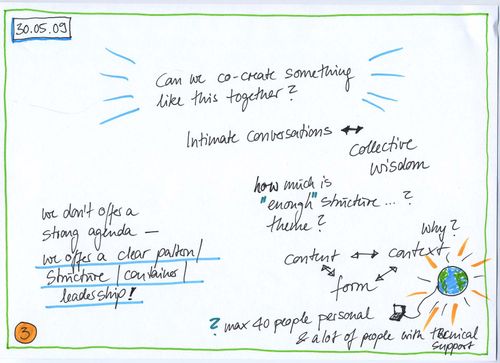 30.05.09
Can we co-create something
like this together?
Intimate Conversations ↔
Collective
wisdom
how much is
"enough" structure ... ?
theme?
we don't offer a
strong agenda —
we offer a clear pattern/
structure / container/
leadership!
why?
content ↔ context
form
? max 40 people personal
& a lot of people with technical
support
3